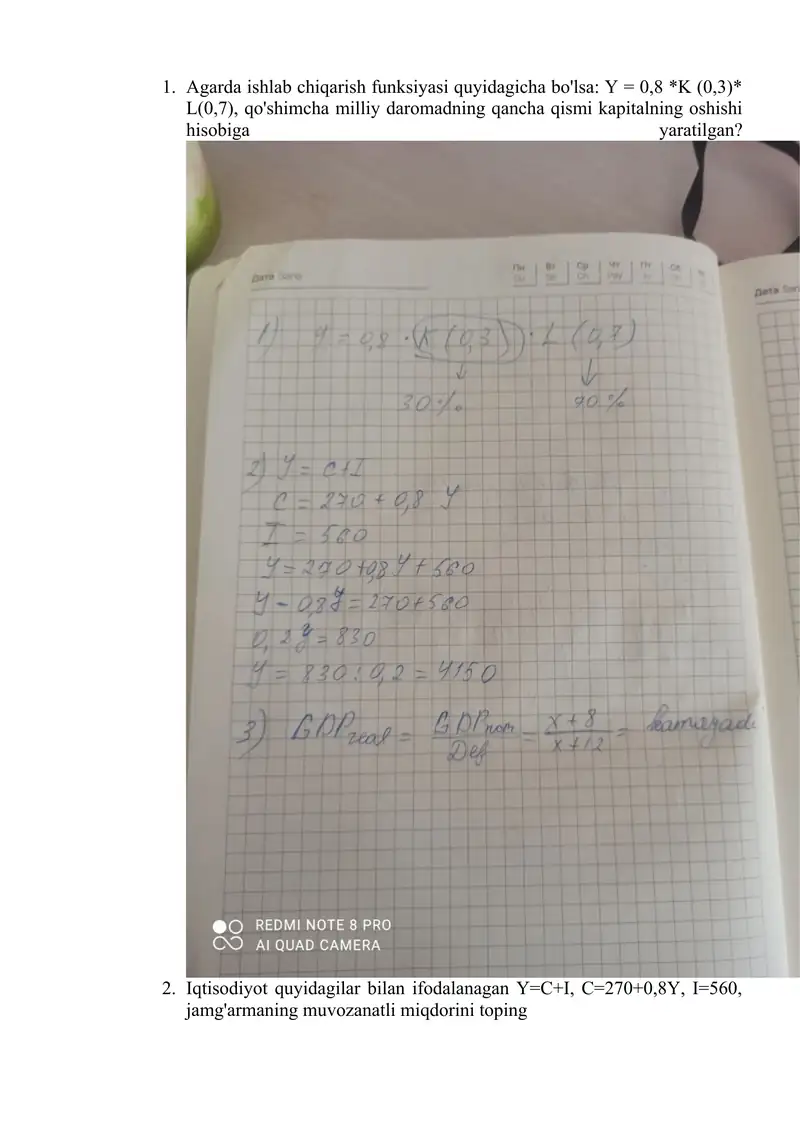 1. Agarda ishlab chiqarish funksiyasi quyidagicha bo'lsa: Y = 0,8 *K (0,3)*
L(0,7), qo'shimcha milliy daromadning qancha qismi kapitalning oshishi
hisobiga yaratilgan?
Дата Sana
Пн Вт Ср Чт Пт Сб
Дата San
1) Y = 0,8 · (K (0,3)) · L (0,7)
↓ ↓
30% 70%
2) Y = C+I
C = 270 + 0,8 Y
I = 560
Y = 270+0,8Y + 560
Y - 0,8Y = 270+560
0,2Y = 830
Y = 830 : 0,2 = 4150
3) GDPreal = GDPnom / Def = x+8 / x+12 = kamayadi
REDMI NOTE 8 PRO
AI QUAD CAMERA
2. Iqtisodiyot quyidagilar bilan ifodalanagan Y=C+I, C=270+0,8Y, I=560,
jamg'armaning muvozanatli miqdorini toping